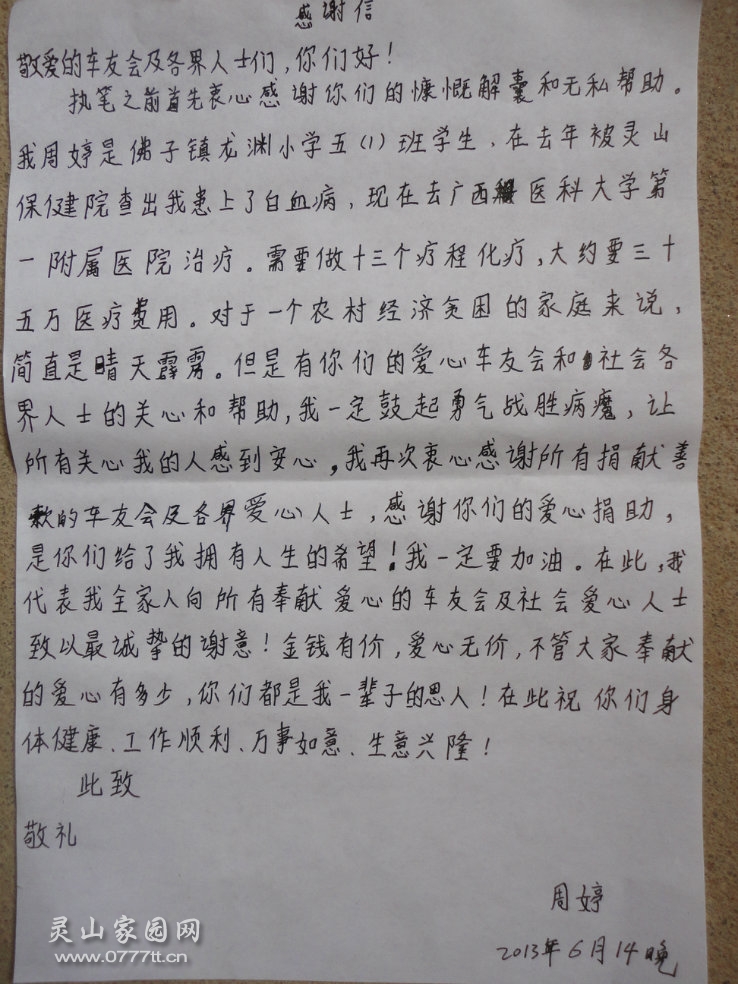 感谢信
敬爱的车友会及各界人士们,你们好!
执笔之前首先衷心感谢你们的慷慨解囊和无私帮助。
我周婷是佛子镇龙渊小学五(1)班学生,在去年被灵山
保健院查出我患上了白血病,现在去广西医科大学第
一附属医院治疗。需要做十三个疗程化疗,大约要三十
五万医疗费用。对于一个农村经济贫困的家庭来说,
简直是晴天霹雳。但是有你们的爱心车友会和社会各
界人士的关心和帮助,我一定鼓起勇气战胜病魔,让
所有关心我的人感到安心。我再次衷心感谢所有捐献善
款的车友会及各界爱心人士,感谢你们的爱心捐助,
是你们给了我拥有人生的希望!我一定要加油。在此,我
代表我全家人向所有奉献爱心的车友会及社会爱心人士
致以最诚挚的谢意!金钱有价,爱心无价,不管大家奉献
的爱心有多少,你们都是我一辈子的恩人!在此祝你们身
体健康、工作顺利、万事如意、生意兴隆!
此致
敬礼
周婷
2013年6月14晚
灵山家园网
www.0777tt.cn